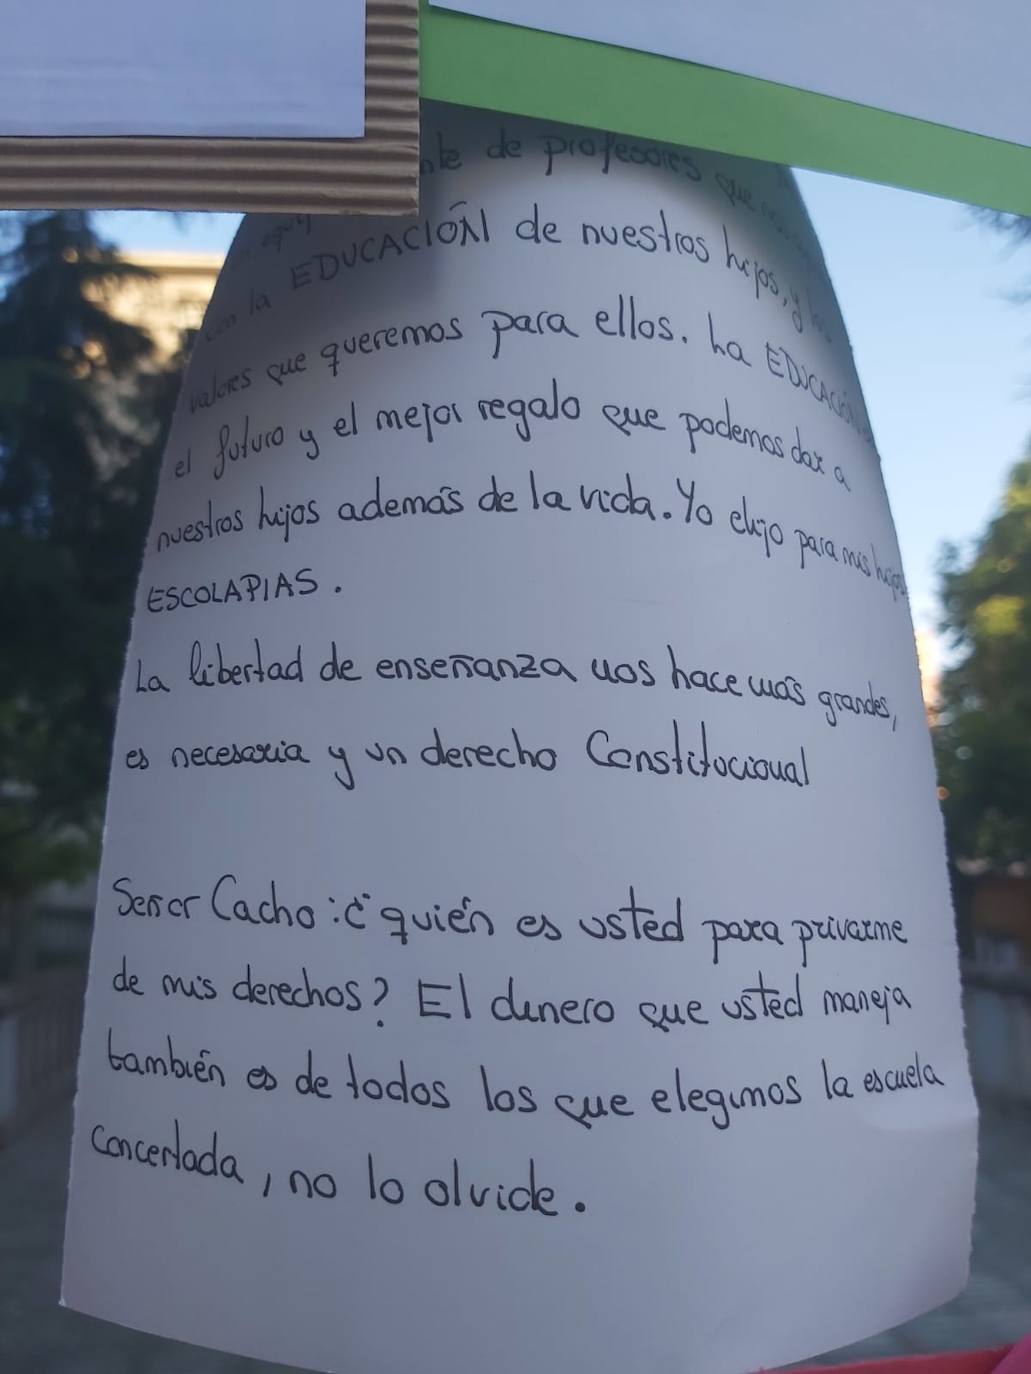 de profesores que
la EDUCACIÓN de nuestros hijos, y
valores que queremos para ellos. La EDUCACIÓN
el futuro y el mejor regalo que podemos dar a
nuestros hijos además de la vida. Yo elijo para mis hijos
ESCOLAPIAS.
La libertad de enseñanza nos hace más grandes,
es necesaria y un derecho Constitucional
Señor Cacho: ¿quién es usted para privarme
de mis derechos? El dinero que usted maneja
también es de todos los que elegimos la escuela
concertada, no lo olvide.